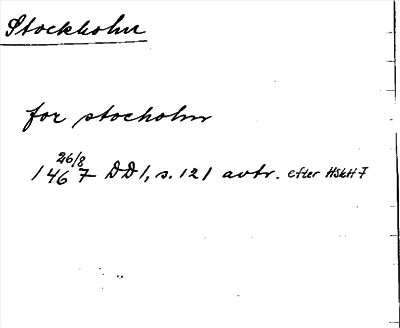 Stockholm
for stocholm
1467 26/8 DD 1, s. 121 avtr. efter HSkH 7